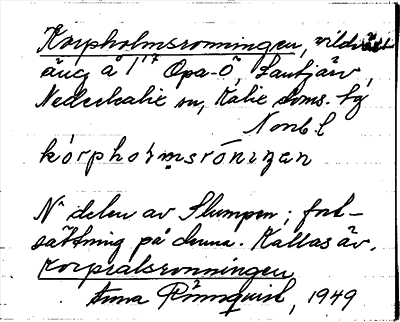 Korpholmsronningen, vildväxt
äng å 1¹⁷ Opa-Ö, Santjärv,
Nederkalix sn, Kalix doms. tg
Nonb L
kórphołmsröningen
N delen av Slumpen; fort-
sättning på denna. Kallas äv.
Korpralsronningen
Anna Rönnquist, 1949